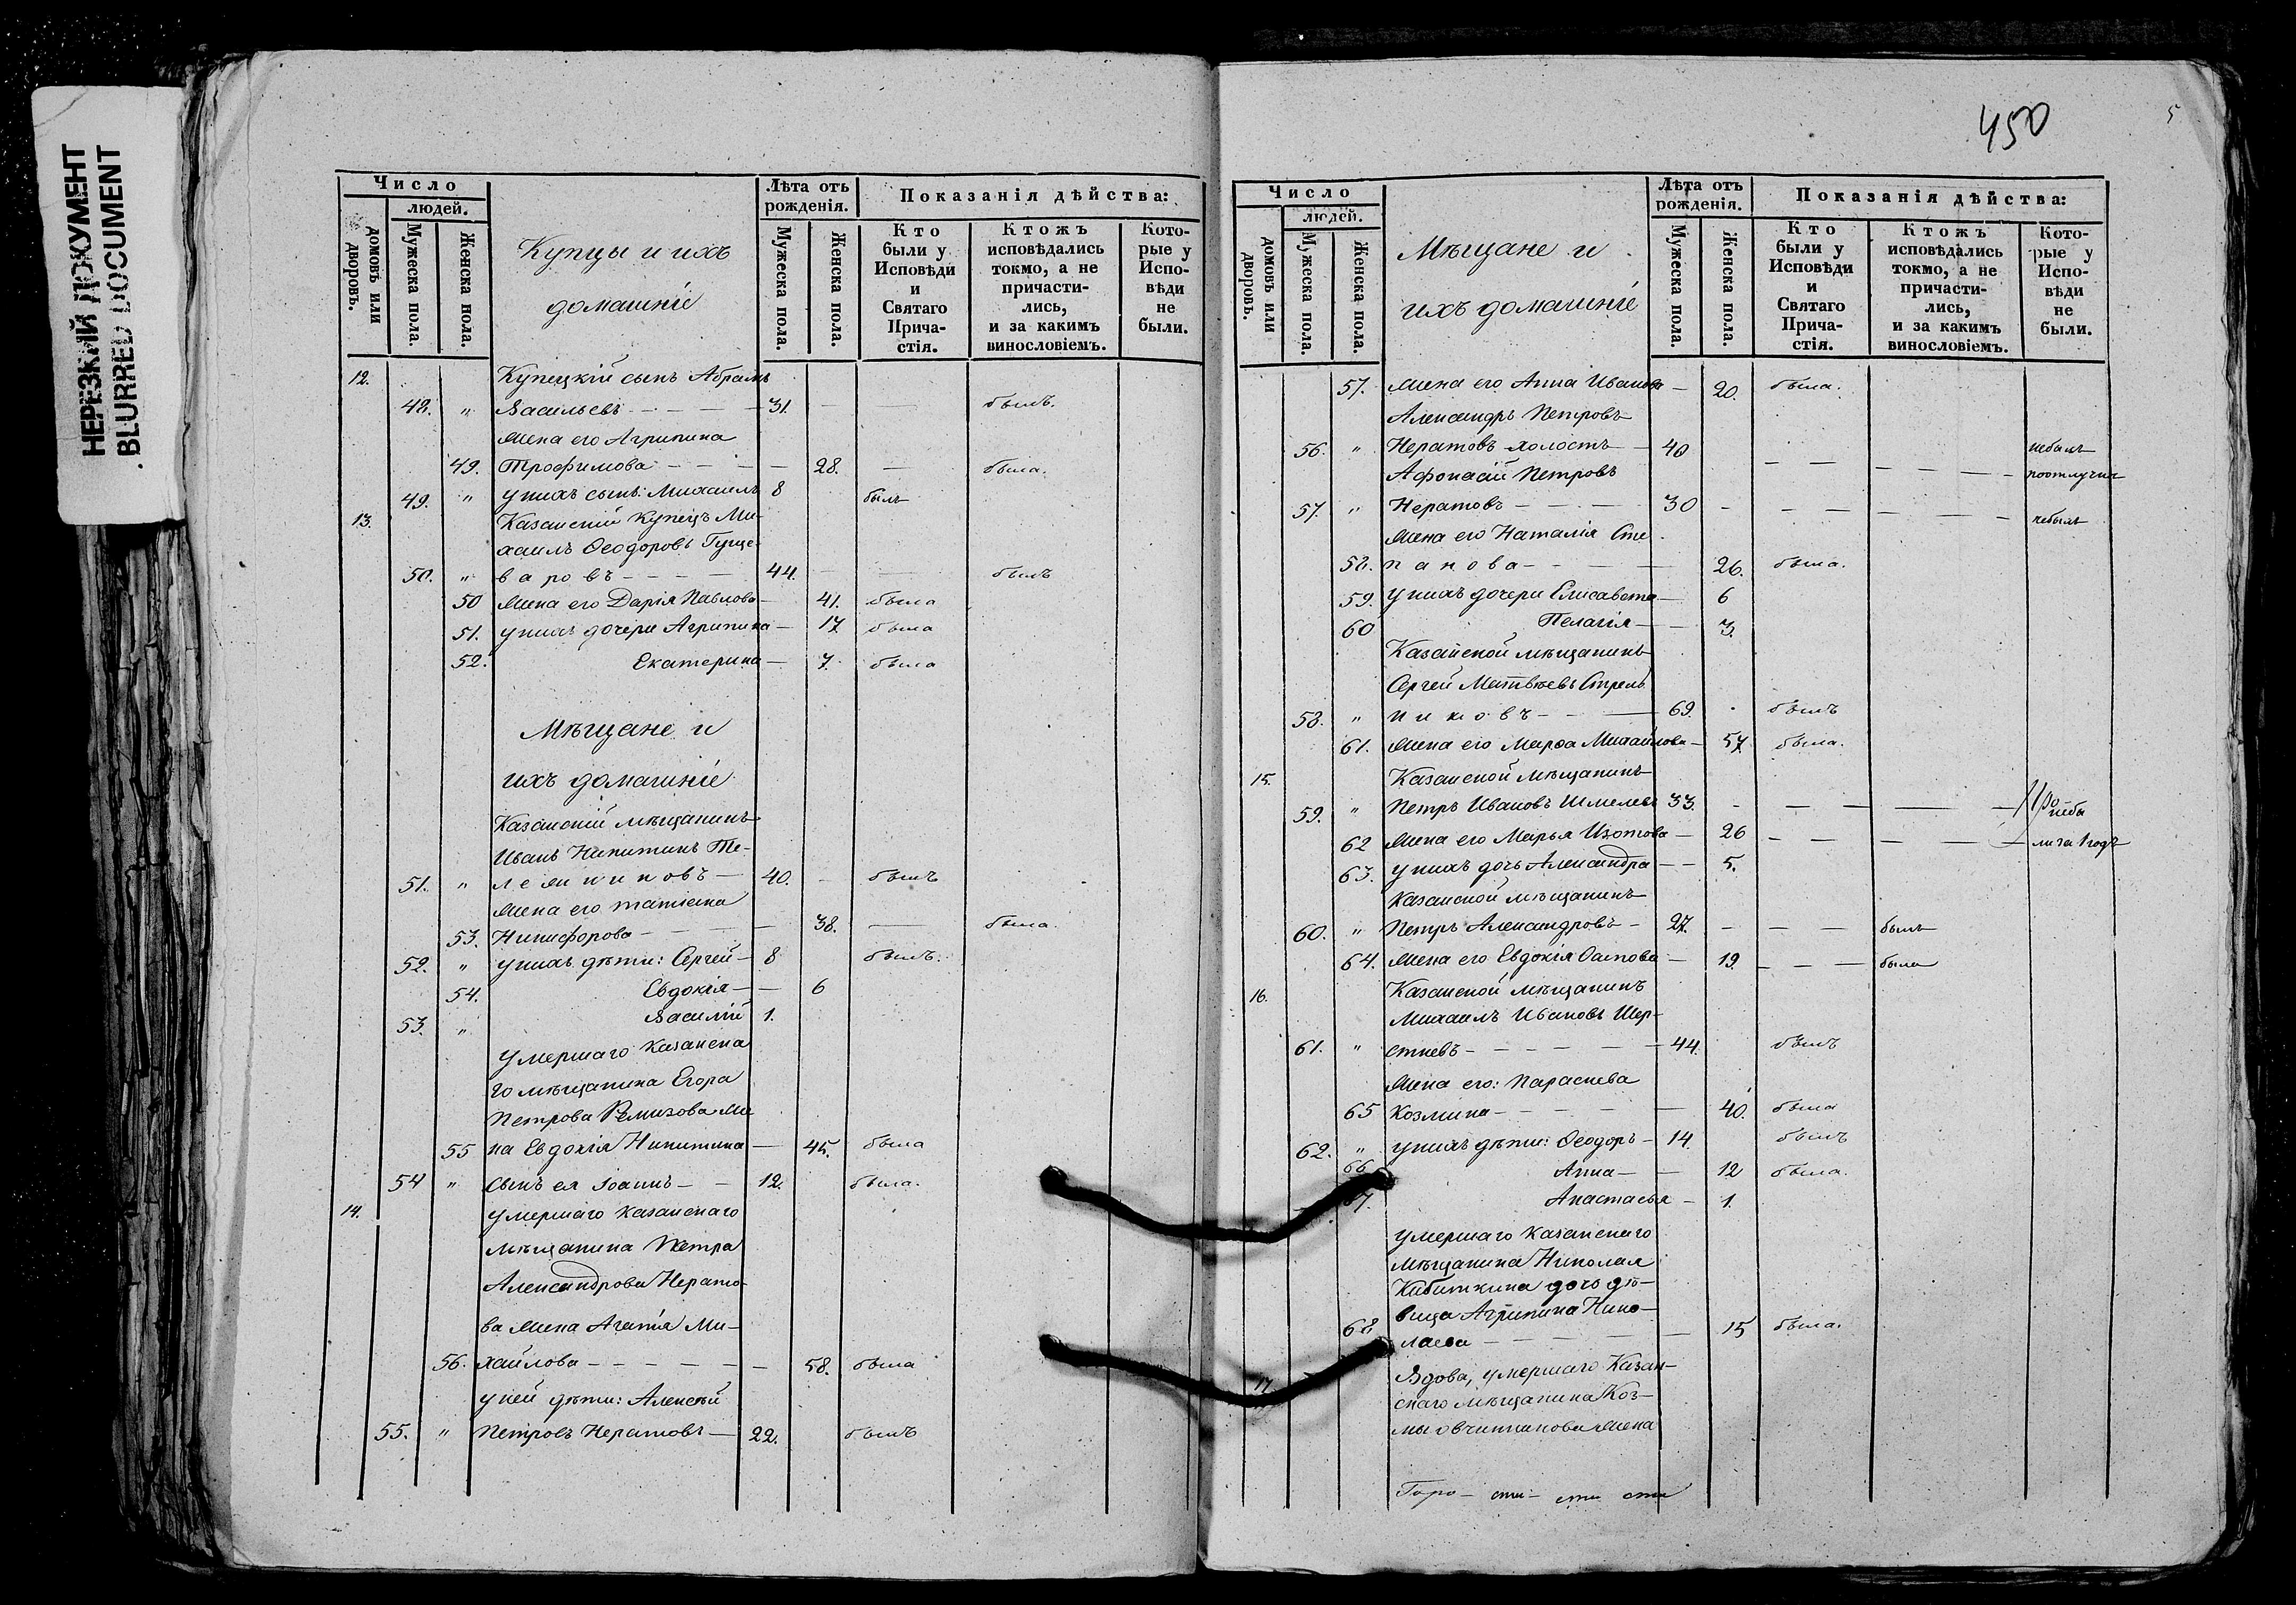 НЕРЕЗКИЙ ДОКУМЕНТ
BLURRED DOCUMENT
Число
людей.
домовъ или дворовъ.
Мужеска пола.
Женска пола.
Купцы и ихъ
домашніе
Лѣта отъ рожденія.
Мужеска пола.
Женска пола.
Показанія дѣйства:
Кто были у Исповѣди и Святаго Прича-стія.
Ктожъ исповѣдались токмо, а не причасти-лись, и за какимъ винословіемъ.
Кото-рые у Испо-вѣди не были.
12. Купецкій сынъ Абрамъ
48. " Васильевъ - - - 31. — былъ.
Жена его Агрипина
49. Трофимова - - - 28. — была.
49. " у нихъ сынъ: Михаилъ 8 былъ
13. Казанскій Купецъ Ми-
хаилъ Ѳеодоровъ Гуще-
50. " варовъ - - - 44. — былъ
50 Жена его Дарія Павлова - 41. была
51. у нихъ дочери Агрипина - 17. была
52. Екатерина - 7. была
Мѣщане и
ихъ домашніе
Казанскій мѣщанинъ
Иванъ Никитинъ Те-
51. " лежниковъ - 40. - былъ
Жена его Татіана
53. Никифорова - - - 38. — была.
52. " у нихъ дѣти: Сергей - 8 былъ.
54. Евдокія - - 6
53. " Василій 1.
Умершаго Казанска
го мѣщанина Егора
Петрова Ремизова Же
55 на Евдокія Никитина - 45. была
54 " Сынъ ея Іоаннъ - - 12. была.
14. Умершаго Казанскаго
мѣщанина Петра
Александрова Нерато-
ва Жена Агапія Ми-
56. хайлова - - - - - 58. была
у ней дѣти: Алексѣй
55. " Петровъ Нератовъ - 22. былъ
450
5
Число
людей.
домовъ или дворовъ.
Мужеска пола.
Женска пола.
Мѣщане и
ихъ домашніе
Лѣта отъ рожденія.
Мужеска пола.
Женска пола.
Показанія дѣйства:
Кто были у Исповѣди и Святаго Прича-стія.
Ктожъ исповѣдались токмо, а не причасти-лись, и за какимъ винословіемъ.
Кото-рые у Испо-вѣди не были.
57. Жена его Анна Иванова - 20. была.
Александръ Петровъ
56. " Нератовъ холостъ - 40 небылъ
Афонасій Петровъ - - - - - поотлучки
57. " Нератовъ - - - 30 - - - - - небылъ
Жена его Наталія Сте
58. панова - - - 26. была.
59. у нихъ дочери Елисавета - 6
60 Пелагія - - 3.
Казанской мѣщанинъ
Сергей Матвѣевъ Стрель
58. " никовъ - - - 69. былъ
61. Жена его Марѳа Михайлова - 57. была.
15. Казанской мѣщанинъ
59. " Петръ Ивановъ Шмелевъ 33. - - - - - неба
62 Жена его Марья Изотова - 26 - - - - - ли за 1 годъ
63. у нихъ дочь Александра - - 5.
Казанской мѣщанинъ
60. " Петръ Александровъ - 27. - - - былъ
64. Жена его Евдокія Осипова - 19. - - - была
16. Казанской мѣщанинъ
Михаилъ Ивановъ Шер-
61. " стневъ - - - - - 44. былъ
Жена его: Параскева
65 Козмина - - - - - 40. была
62. " у нихъ дѣти: Ѳеодоръ - 14. былъ
66 Анна - - 12 была.
67. Анастасья - 1.
Умершаго Казанскаго
мѣщанина Николая
Кибиткина дочь дѣ-
вица Агрипина Нико-
68. лаева - - - - - 15 была.
17 Вдова, умершаго Казан-
скаго мѣщанина Коз-
мы Овчинникова Жена